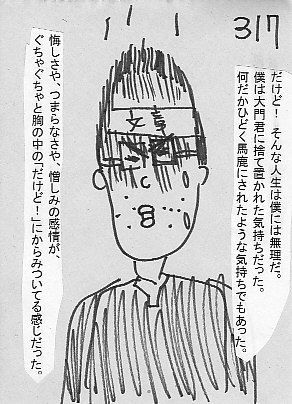 317
だけど！　そんな人生は僕には無理だ。
僕は大門君に捨て置かれた気持ちだった。
何だかひどく馬鹿にされたような気持ちでもあった。
文章
悔しさや、つまらなさや、憎しみの感情が、
ぐちゃぐちゃと胸の中の「だけど！」にからみついてる感じだった。